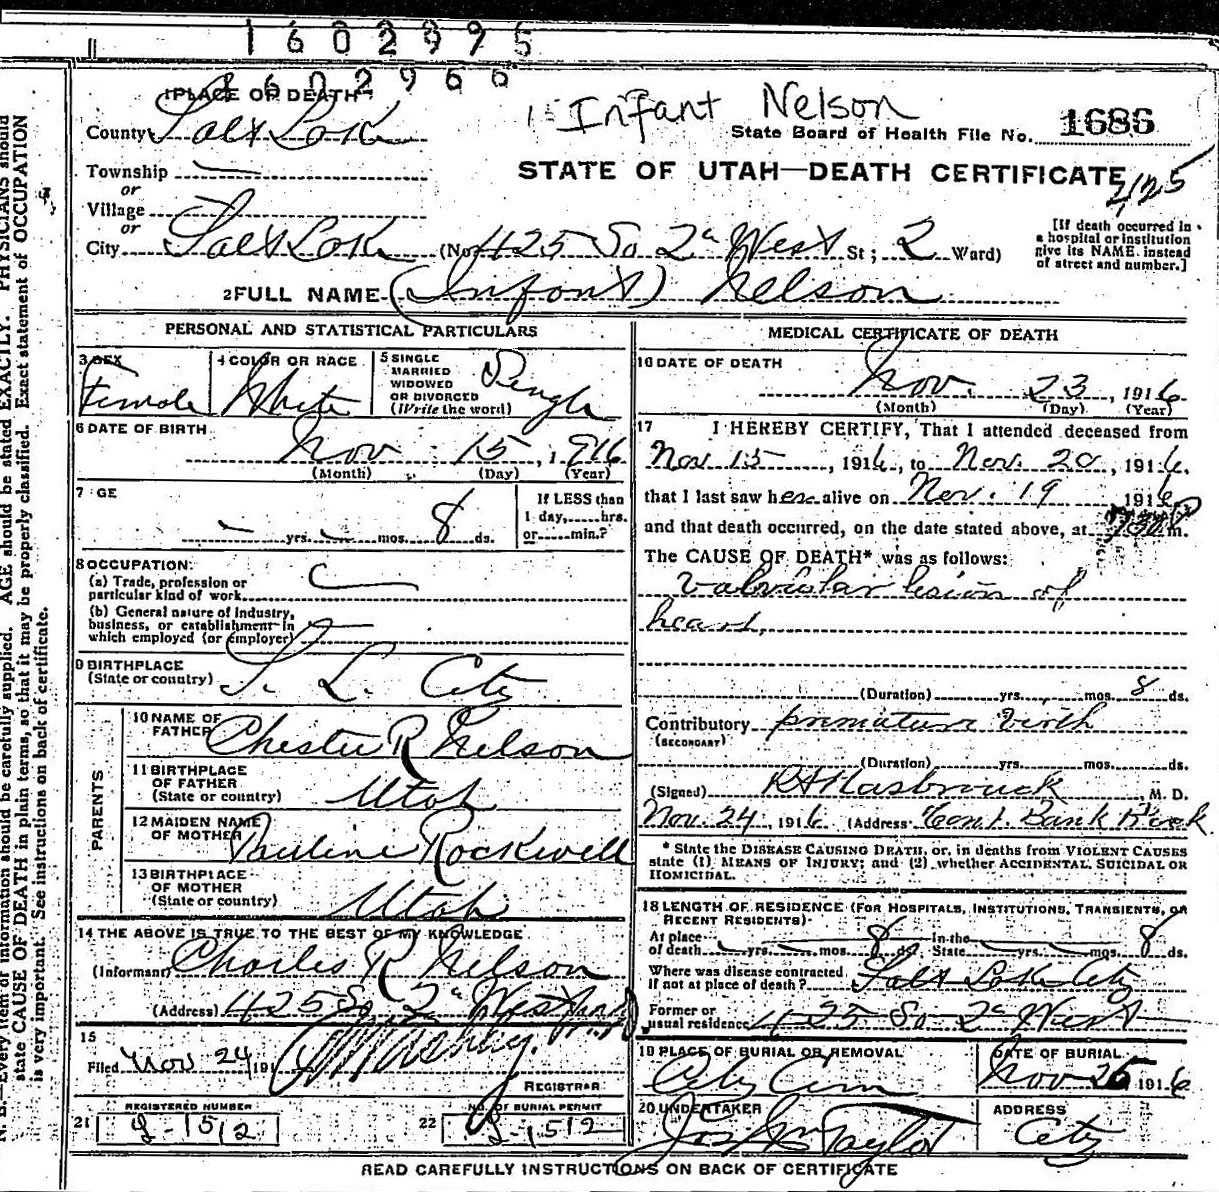 1602995
1602966
1 PLACE OF DEATH
Infant Nelson
County Salt Lake
State Board of Health File No. 1686
Township
STATE OF UTAH—DEATH CERTIFICATE
425
or
Village
or
City Salt Lake (No 425 So 2nd West St; 2 Ward)
[If death occurred in
a hospital or institution
give its NAME instead
of street and number.]
2 FULL NAME (Infant) Nelson
PERSONAL AND STATISTICAL PARTICULARS
3 SEX
Female
4 COLOR OR RACE
White
5 SINGLE
MARRIED
WIDOWED
OR DIVORCED
(Write the word)
Single
6 DATE OF BIRTH
Nov 15, 1916
(Month) (Day) (Year)
7 GE
yrs. mos. 8 ds.
If LESS than
1 day, hrs.
or min.?
8 OCCUPATION:
(a) Trade, profession or
particular kind of work
(b) General nature of industry,
business, or establishment in
which employed (or employer)
9 BIRTHPLACE
(State or country) S. L. City
PARENTS
10 NAME OF
FATHER Chester R Nelson
11 BIRTHPLACE
OF FATHER
(State or country) Utah
12 MAIDEN NAME
OF MOTHER Pauline Rockwell
13 BIRTHPLACE
OF MOTHER
(State or country) Utah
14 THE ABOVE IS TRUE TO THE BEST OF MY KNOWLEDGE
(Informant) Charles R Nelson
(Address) 425 So 2nd West
15
Filed Nov 24 191
REGISTRAR
REGISTERED NUMBER
21 J-1512
NO. OF BURIAL PERMIT
22 J-1512
MEDICAL CERTIFICATE OF DEATH
16 DATE OF DEATH
Nov. 23, 1916
(Month) (Day) (Year)
17 I HEREBY CERTIFY, That I attended deceased from
Nov 15, 1916, to Nov. 20, 1916.
that I last saw her alive on Nov. 19 1916
and that death occurred, on the date stated above, at 7:30 P m.
The CAUSE OF DEATH* was as follows:
Valvular lesion of
heart,
(Duration) yrs. mos. 8 ds.
Contributory premature birth
(SECONDARY)
(Duration) yrs. mos. ds.
(Signed) R H Hasbrouck, M. D.
Nov. 24, 1916 (Address Cont. Bank
* State the DISEASE CAUSING DEATH, or, in deaths from VIOLENT CAUSES
state (1) MEANS OF INJURY; and (2) whether ACCIDENTAL, SUICIDAL OR
HOMICIDAL.
18 LENGTH OF RESIDENCE (FOR HOSPITALS, INSTITUTIONS, TRANSIENTS, OR
RECENT RESIDENTS)
At place
of death yrs. mos. 8 ds. In the
State yrs. mos. 8 ds.
Where was disease contracted
If not at place of death? Salt Lake City
Former or
usual residence 425 So 2nd West
19 PLACE OF BURIAL OR REMOVAL
City Cem
DATE OF BURIAL
Nov 25 1916
20 UNDERTAKER
Jos Wm Taylor
ADDRESS
City
READ CAREFULLY INSTRUCTIONS ON BACK OF CERTIFICATE
N. B.—Every item of information should be carefully supplied. AGE should be stated EXACTLY. PHYSICIANS should
state CAUSE OF DEATH in plain terms, so that it may be properly classified. Exact statement of OCCUPATION
is very important. See instructions on back of certificate.